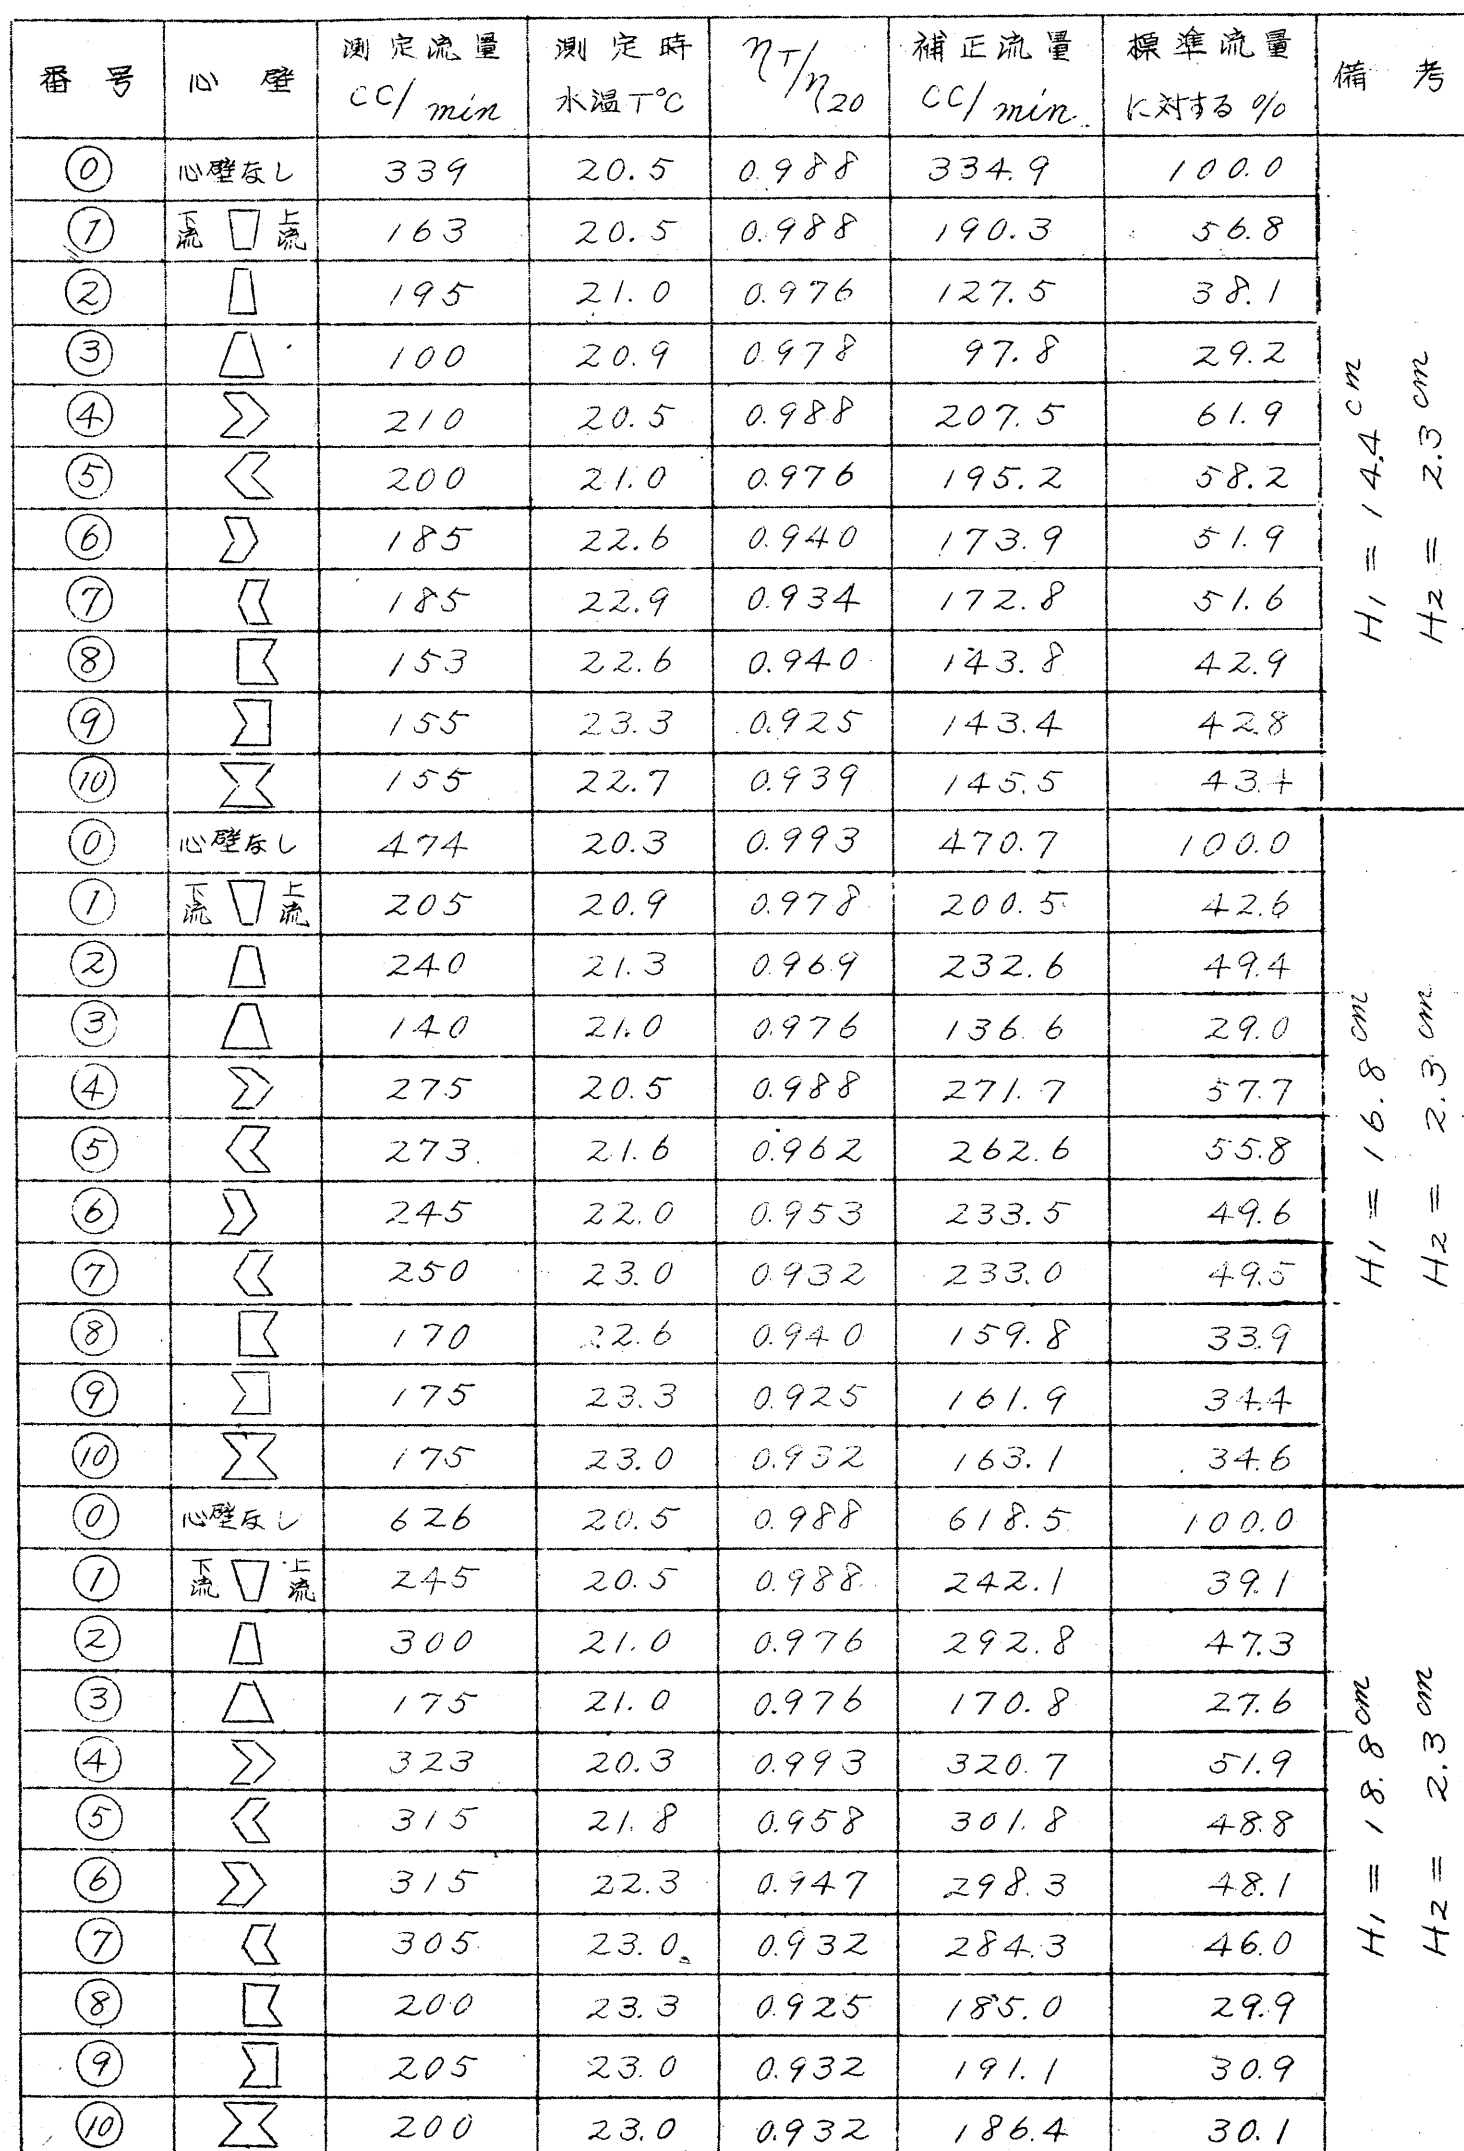 番号 心壁 測定流量 CC/min 測定時水温T°C ηT/η20 補正流量 CC/min 標準流量に対する% 備考
⓪ 心壁なし 339 20.5 0.988 334.9 100.0
① 下流 上流 163 20.5 0.988 190.3 56.8
② 195 21.0 0.976 127.5 38.1
③ 100 20.9 0.978 97.8 29.2
④ 210 20.5 0.988 207.5 61.9
⑤ 200 21.0 0.976 195.2 58.2
⑥ 185 22.6 0.940 173.9 51.9
⑦ 185 22.9 0.934 172.8 51.6
⑧ 153 22.6 0.940 143.8 42.9
⑨ 155 23.3 0.925 143.4 42.8
⑩ 155 22.7 0.939 145.5 43.4
H1 = 14.4 cm
H2 = 2.3 cm
⓪ 心壁なし 474 20.3 0.993 470.7 100.0
① 下流 上流 205 20.9 0.978 200.5 42.6
② 240 21.3 0.969 232.6 49.4
③ 140 21.0 0.976 136.6 29.0
④ 275 20.5 0.988 271.7 57.7
⑤ 273 21.6 0.962 262.6 55.8
⑥ 245 22.0 0.953 233.5 49.6
⑦ 250 23.0 0.932 233.0 49.5
⑧ 170 22.6 0.940 159.8 33.9
⑨ 175 23.3 0.925 161.9 34.4
⑩ 175 23.0 0.932 163.1 34.6
H1 = 16.8 cm
H2 = 2.3 cm
⓪ 心壁なし 626 20.5 0.988 618.5 100.0
① 下流 上流 245 20.5 0.988 242.1 39.1
② 300 21.0 0.976 292.8 47.3
③ 175 21.0 0.976 170.8 27.6
④ 323 20.3 0.993 320.7 51.9
⑤ 315 21.8 0.958 301.8 48.8
⑥ 315 22.3 0.947 298.3 48.1
⑦ 305 23.0 0.932 284.3 46.0
⑧ 200 23.3 0.925 185.0 29.9
⑨ 205 23.0 0.932 191.1 30.9
⑩ 200 23.0 0.932 186.4 30.1
H1 = 18.8 cm
H2 = 2.3 cm